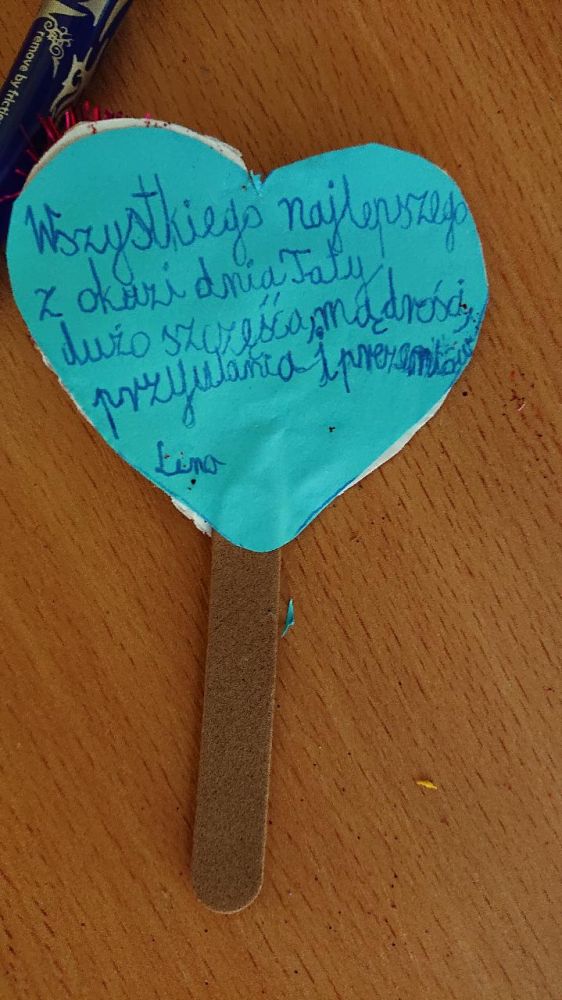 remove by friction
Wszystkiego najlepszego
z okazi dnia Taty
dużo szczęśća, mądrości,
przytulania i prezentów
Lena